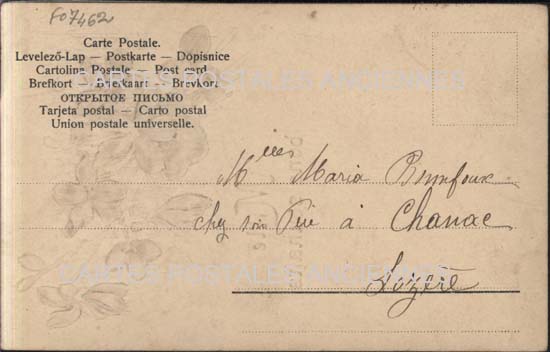 F07462
Carte Postale.
Levelező-Lap — Postkarte — Dopisnice
Cartolina Postale — Post card
Brefkort — Briefkaart — Brevkort
ОТКРЫТОЕ ПИСЬМО
Tarjeta postal — Carto postal
Union postale universelle.
CARTES POSTALES ANCIENNES
Mlles Maria Bonnefoux
chez son Père à Chanac
Lozère
CARTES POSTALES ANCIENNES